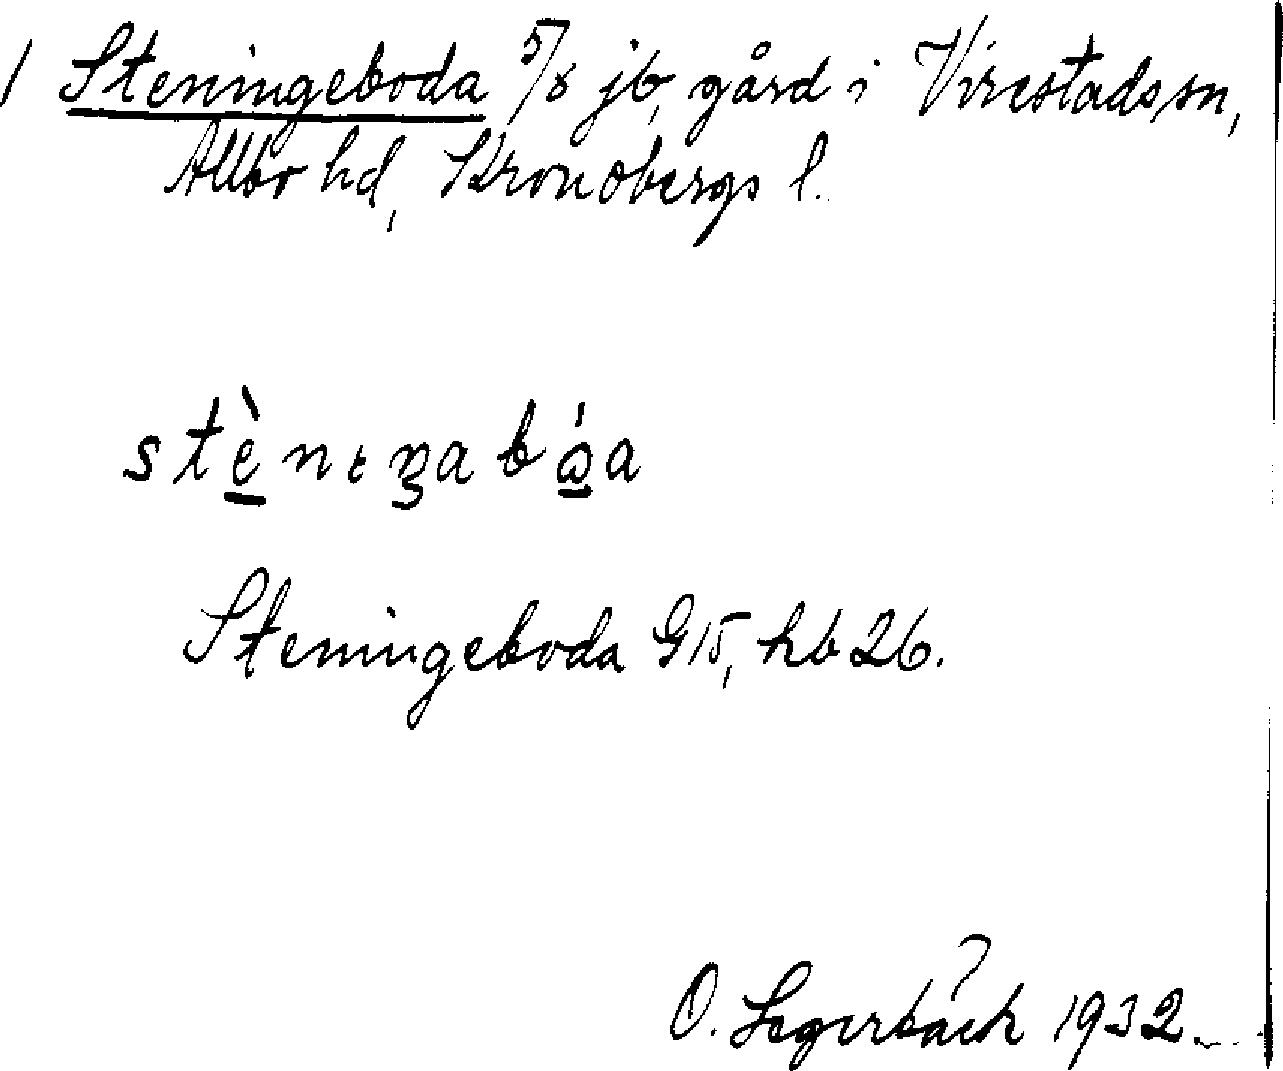 1 Steningeboda 5/8 jb, gård i Virestads sn,
Allbo hd, Kronobergs l.
stènɩŋabǻa
Steningeboda G 15, hb 26.
O. Segerbäck 1932.